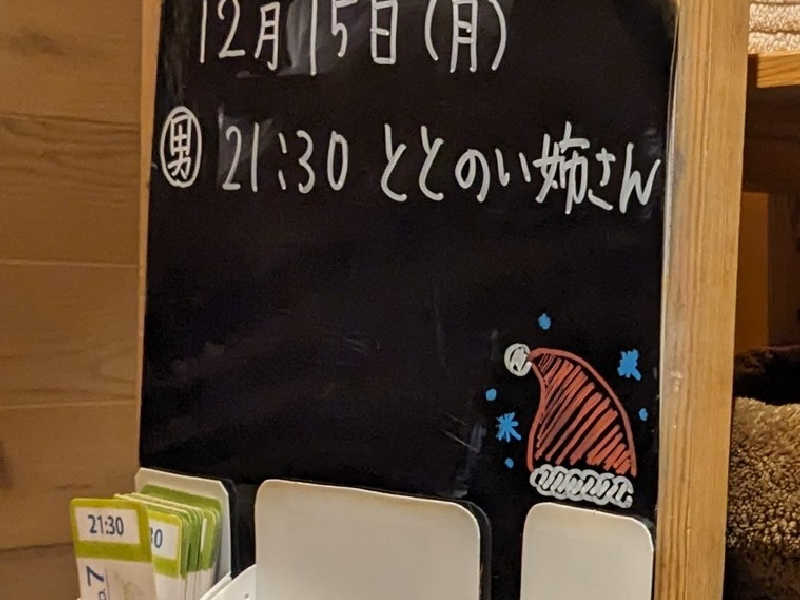 12月15日(月)
男 21:30 ととのい姉さん
21:30
7